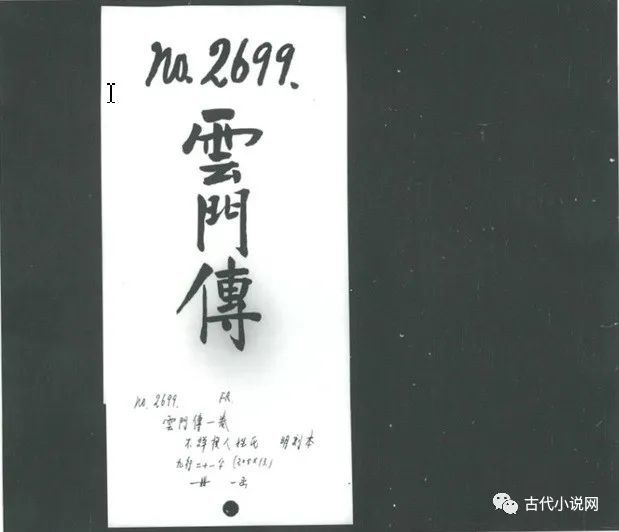 No. 2699.
雲門傳
No. 2699.
雲門傳一卷
不詳撰人姓氏 明刻本
九行二十一字
一冊 一函
古代小说网